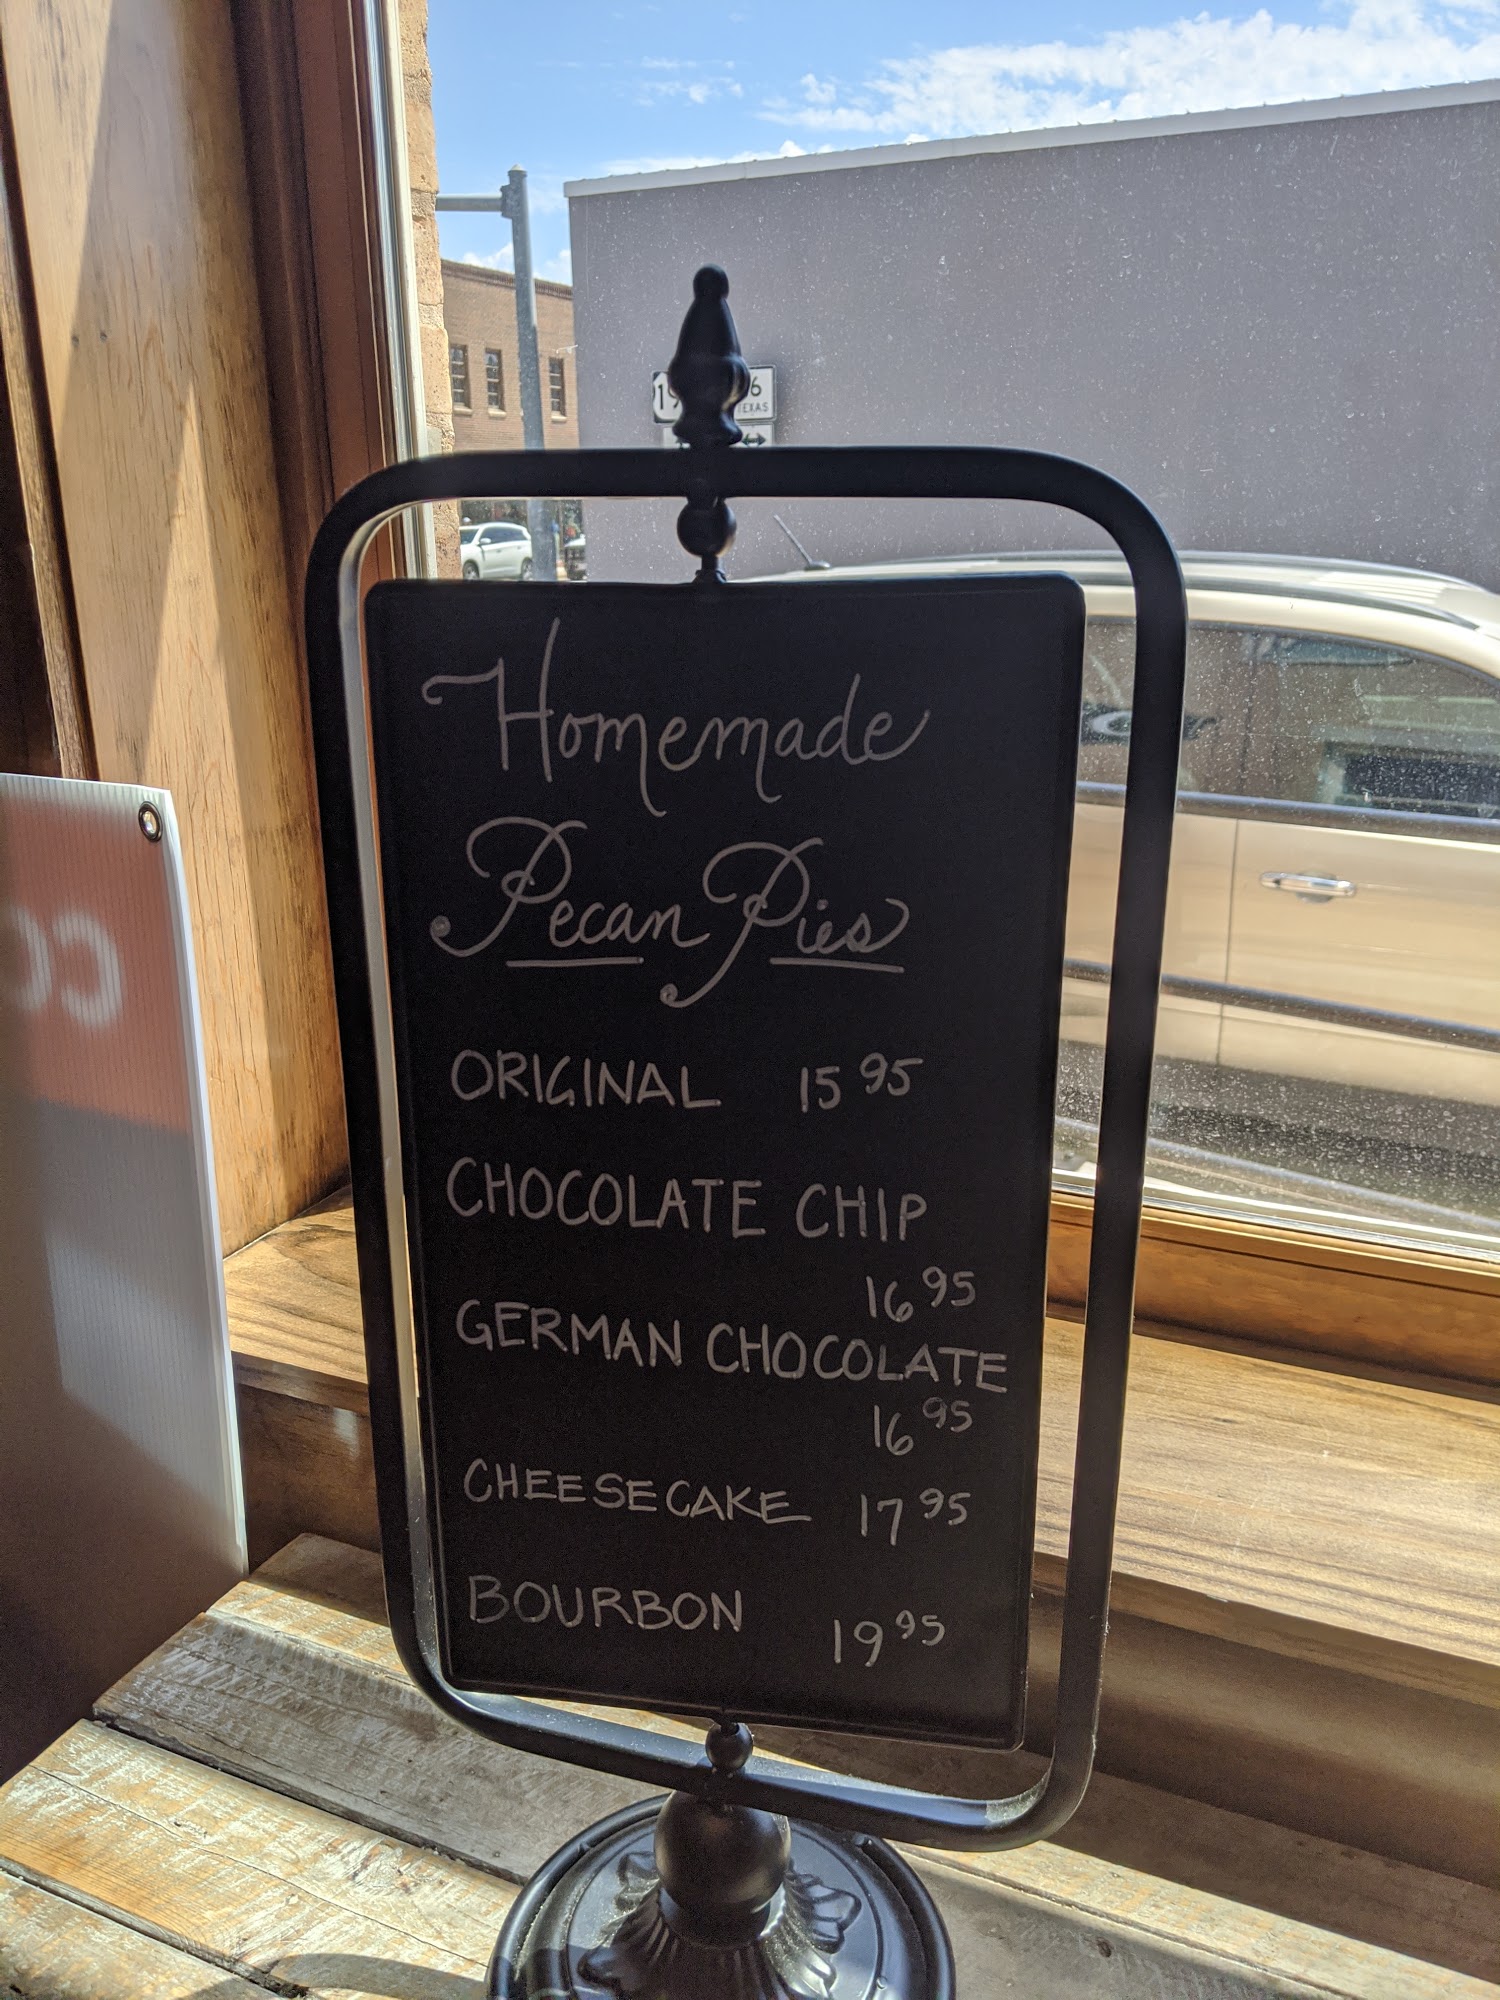 19
6
TEXAS
Homemade
Pecan Pies
ORIGINAL 15 95
CHOCOLATE CHIP
16 95
GERMAN CHOCOLATE
16 95
CHEESECAKE 17 95
BOURBON 19 95